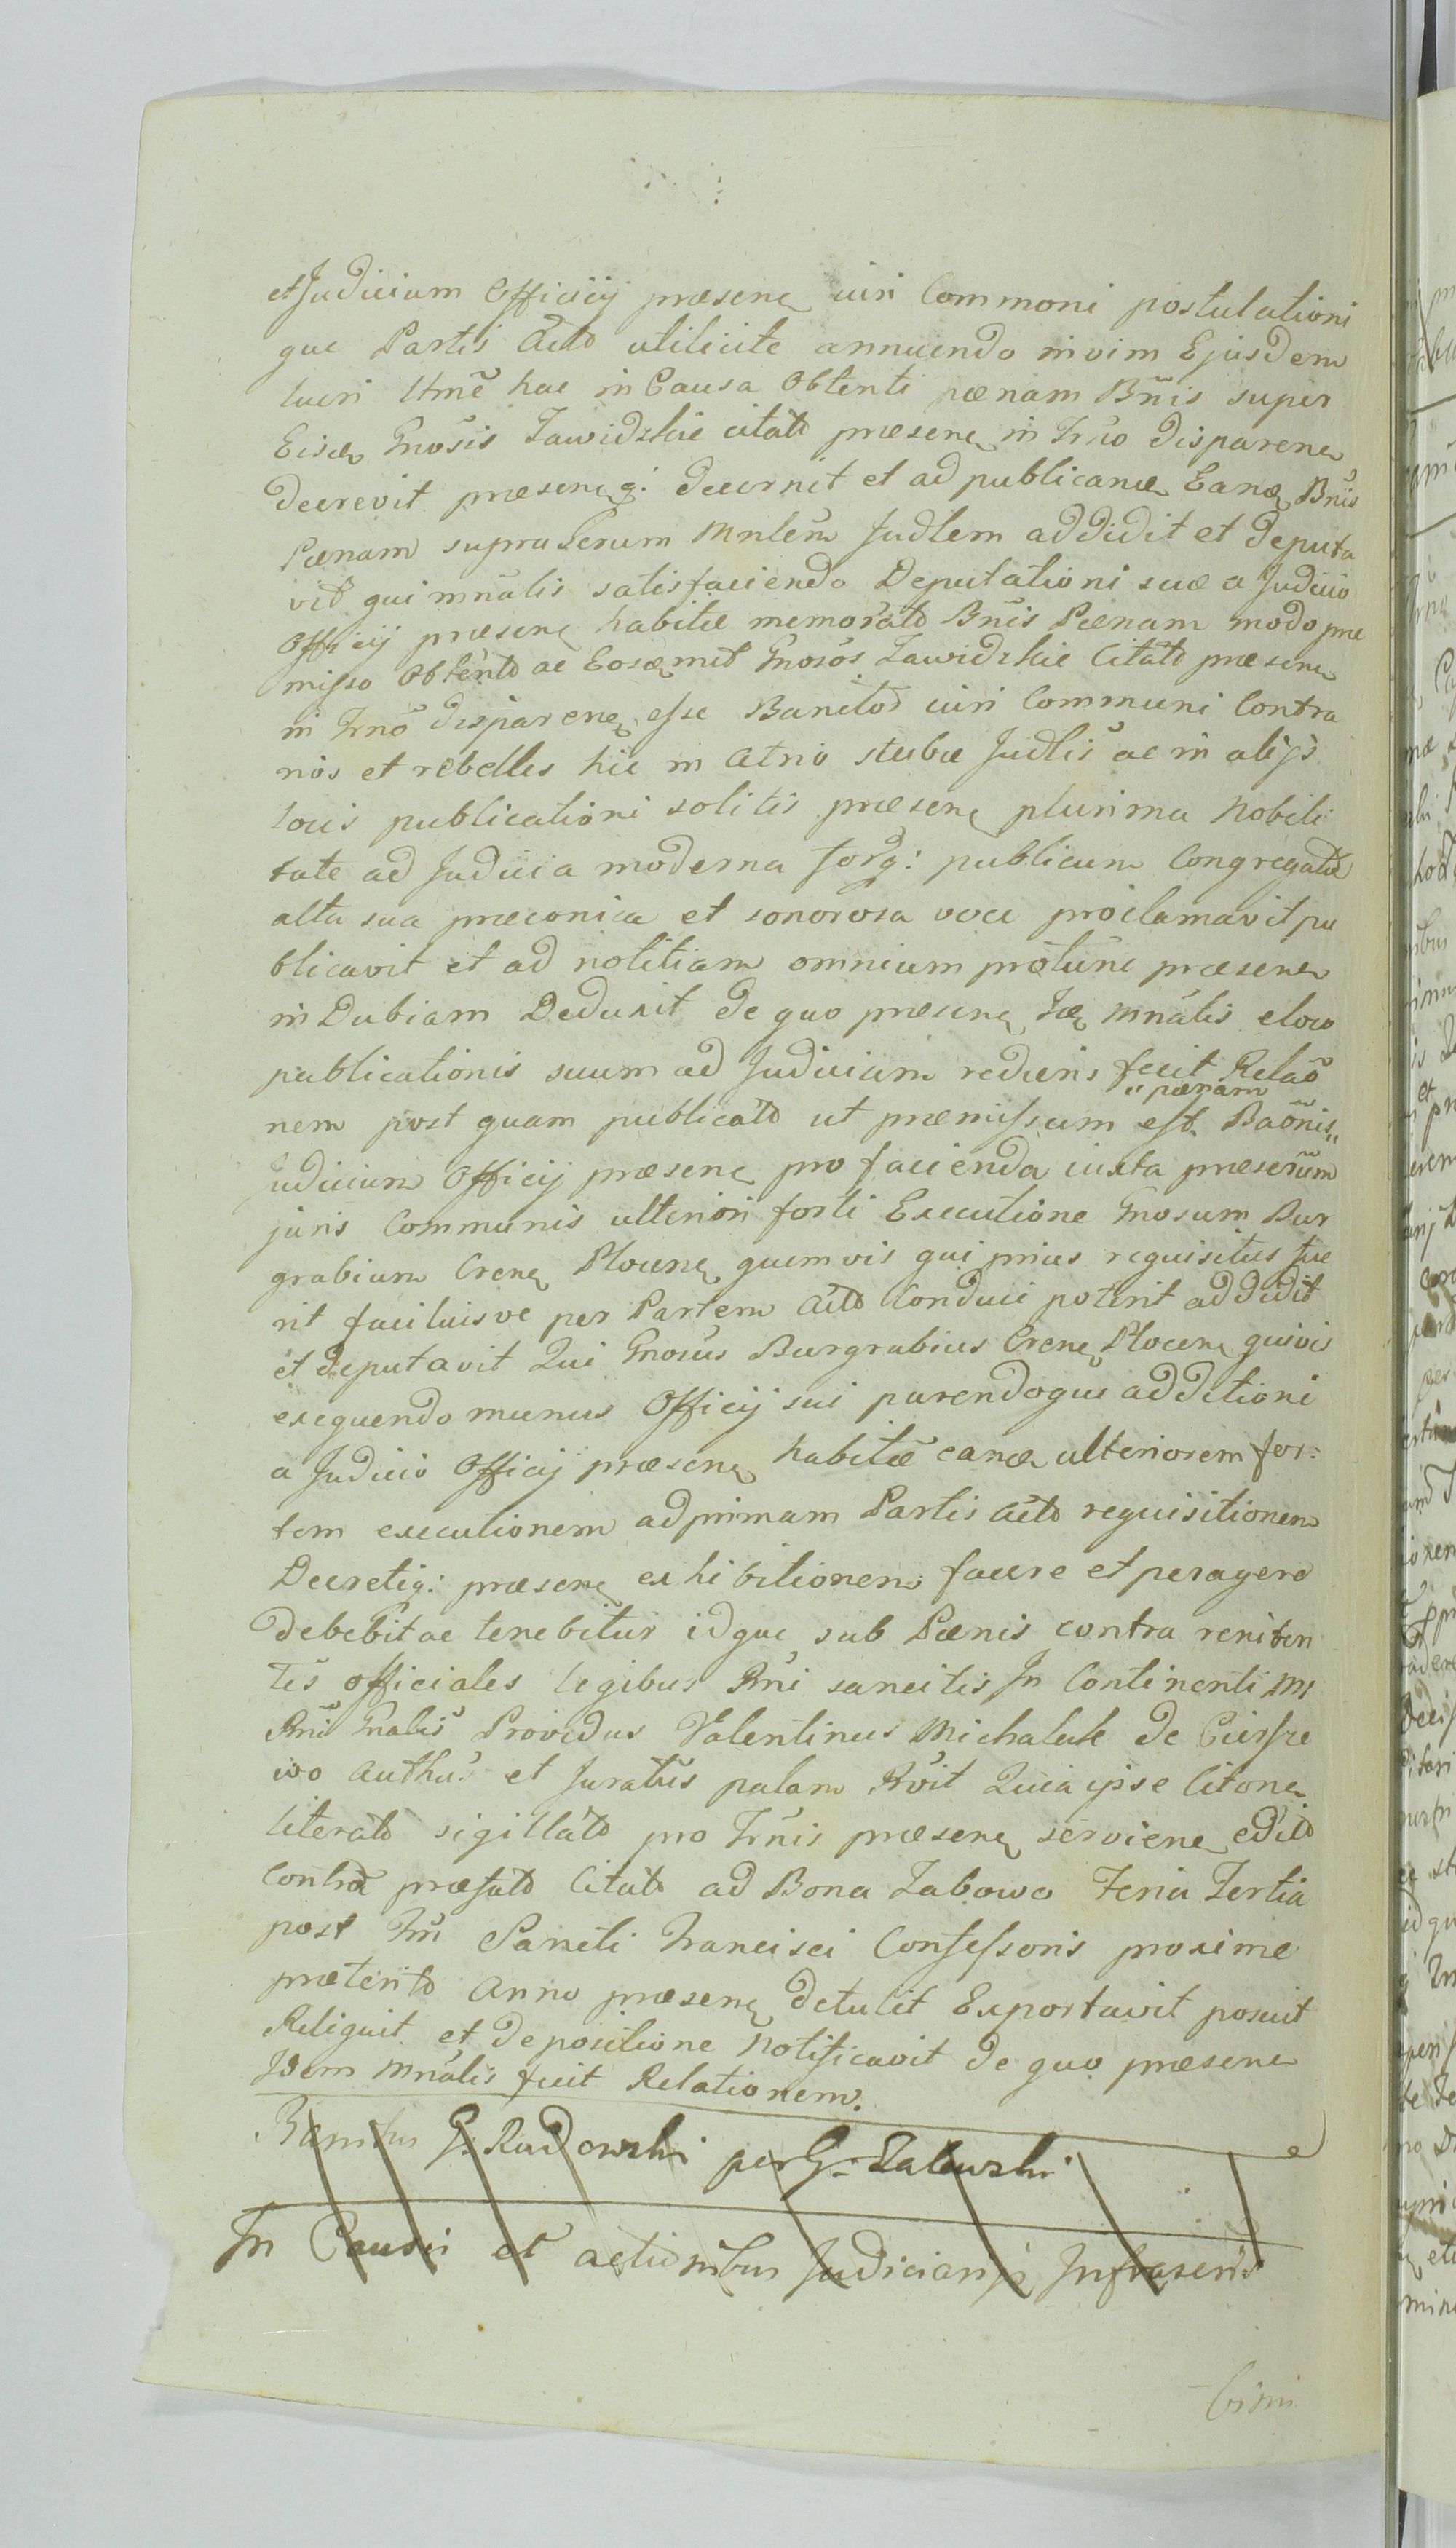 et Judicium Officij præsenę iuri Commoni postulationi
que Partis Actō utilicite annuendo in vim Ejusdem
lucri ttīnē hac in Causa Obtenti pænam Bñis super
Eisdę Gnosis Zawidzkie citatō præsenę in Trño disparenę
decrevit præsenęq: decernit et ad publicandę Eandę Bñis
Pænam suprascrum Mnlem Judlem addidit et deputa
vit qui mnalis satisfaciendo Deputationi suæ a Judicio
Officij præsenę habitæ memoratō Bñis Pænam modo præ
misso Obtentō ac Eosdęmet Gnosos Zawidzkie Citatō præsenę
in Trño disparenę esse Banitos iuri Communi Contra
rios et rebelles hic in Atrio stubæ Judlis ac in alijs
locis publicationi solitis præsenę plurima Nobili
tate ad Judicia moderna forq: publicum Congregatā
alta sua præconica et sonorosa voce proclamavit pu
blicavit et ad notitiam omnium protunc præsenę
in Dubiam Deduxit de quo præsenę Idę Mnalis eloco
publicationis suum ad Judicium rediens fecit Relaõ
nem post quam publicatō ut præmissum est " pænam Baõnis "
Judicium Officij præsenę pro facienda iuxta præscrum
juris Communis ulteriori forti Executione Gnosum Bur
grabium Crenę Plocenę quemvis qui prius requisitus fue
rit faciluisve per Partem Actō Conduci poterit addidit
et deputavit Qui Gnosus Burgrabius Crenę Plocenę quivis
exequendo munus Officij sui parendoque additioni
a Judicio Officij præsenę habitæ eandę ulteriorem for:
tem executionem ad primam Partis Actō requisitionem
Decretiq: præsenę exhibitionem facere et peragere
debebit ac tenebitur idque sub Pænis contra reniten
tes officiales legibus Rni sancitis In Continenti Mi
Rni Gnalis Providus Valentinus Michalak de Cierſze
wo Authus et Juratus palam Rvit Quia ipse Citonę
literatō sigillatō pro Trñis præsenę servienę editō
Contra præfatō Citatō ad Bona Zabowo Feria Tertia
post Fm Sancti Francisci Confessoris proxime
præteritō Anno præsenę detulit Exportavit posuit
Reliquit et de positione Notificavit de quo præsenę
Idem Mnalis fecit Relationem.
Banitus G: Rudowski per G: Zalewski
In Causis et actionibus Judiciarijs Infrascris